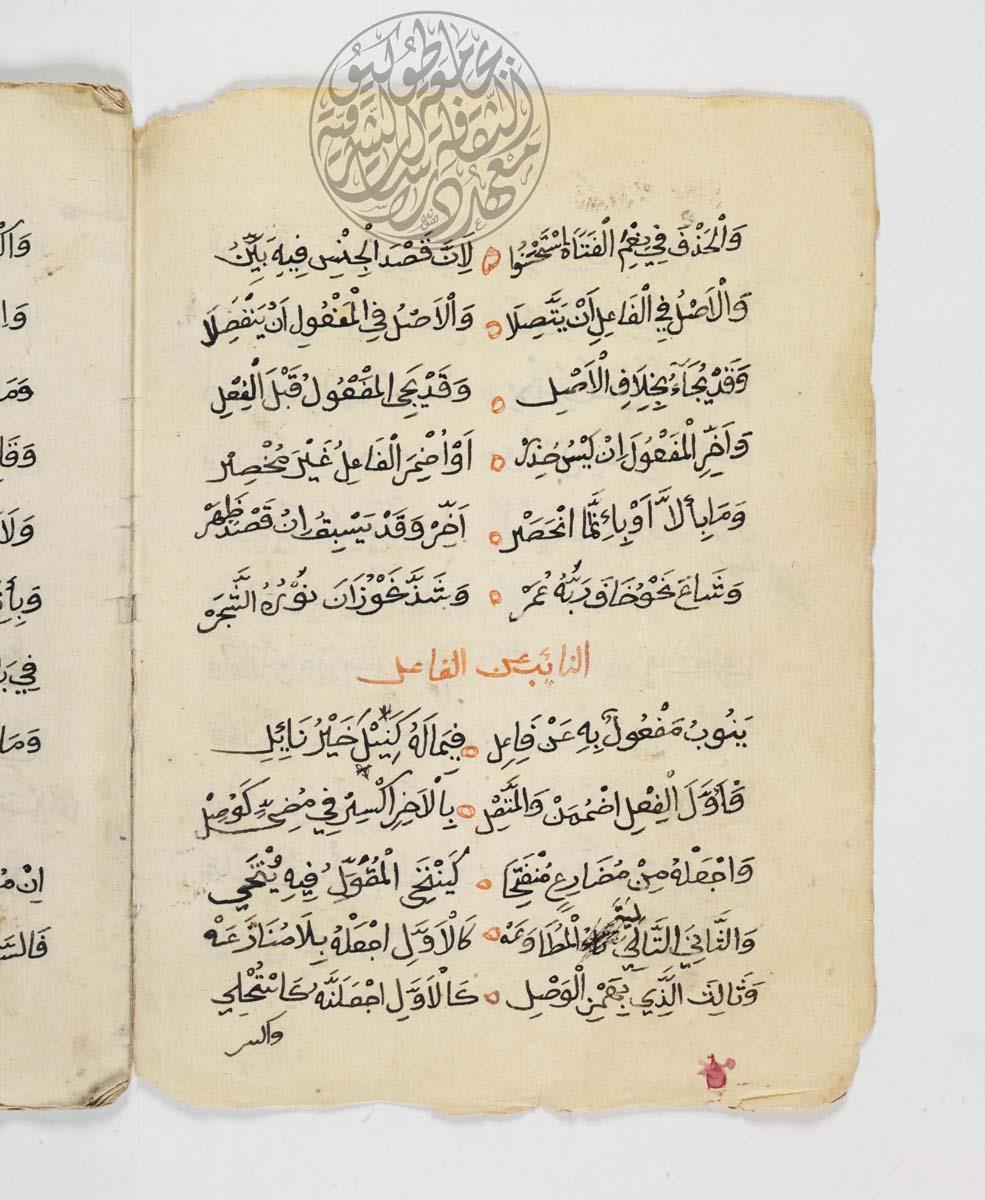 جامعة طوكيو
معهد دراسات الثقافة الشرقية
وَالْحَذْفَ فِي نِعْمَ الْفَتَاةُ اسْتَحْسَنُوا ۝ لِاَنَّ قَصْدَ الْجِنْسِ فِيهِ بَيِّنُ
وَالْاَصْلُ فِي الْفَاعِلِ اَنْ يَتَّصِلَا ۝ وَالْاَصْلُ فِي الْمَفْعُولِ اَنْ يَنْفَصِلَا
وَقَدْ يُجَآءُ بِخِلَافِ الْاَصْلِ ۝ وَقَدْ يَجِي الْمَفْعُولُ قَبْلَ الْفِعْلِ
وَاَخِّرِ الْمَفْعُولَ اِنْ لَبْسٌ حُذِرْ ۝ اَوْ اُضْمِرَ الْفَاعِلُ غَيْرَ مُنْحَصِرْ
وَمَا بِاِلَّا اَوْ بِاِنَّمَا انْحَصَرْ ۝ اَخِّرْ وَقَدْ يَسْبِقُ اِنْ قَصْدٌ ظَهَرْ
وَشَاعَ نَحْوُ خَافَ رَبَّهُ عُمَرْ ۝ وَشَذَّ نَحْوُ زَانَ نَوْرُهُ الشَّجَرْ
النائب عن الفاعل
يَنُوبُ مَفْعُولٌ بِهِ عَنْ فَاعِلِ ۝ فِيمَا لَهُ كَنِيلَ خَيْرُ نَائِلِ
فَاَوَّلَ الْفِعْلِ اضْمُمَنْ وَالْمُتَّصِلْ ۝ بِالْاَخِرِ اكْسِرْ فِي مُضِيٍّ كَوُصِلْ
وَاجْعَلْهُ مِنْ مُضَارِعٍ مُنْفَتِحَا ۝ كَيَنْتَحِي الْمَقُولِ فِيهِ يُنْتَحَى
وَالثَّانِيَ التَّالِيَ تا الْمُطَاوَعَهْ ۝ كَالْاَوَّلِ اجْعَلْهُ بِلَا مُنَازَعَهْ
وَثَالِثَ الَّذِي بِهَمْزِ الْوَصْلِ ۝ كَالْاَوَّلِ اجْعَلَنَّهُ كَاسْتُحْلِي
واكسر